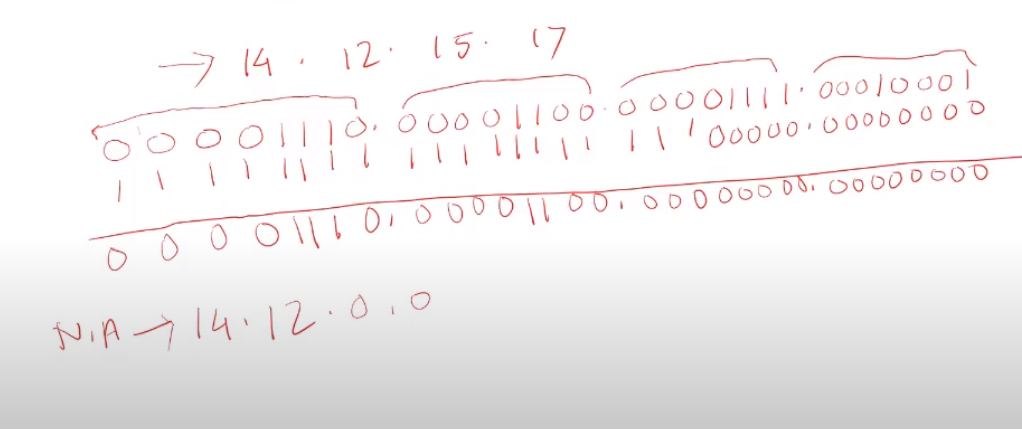 → 14 . 12 . 15 . 17
00001110.00001100.00001111.00010001
11111111 11111111 11100000.00000000
00001110.00001100.00000000.00000000
N.A → 14.12.0.0